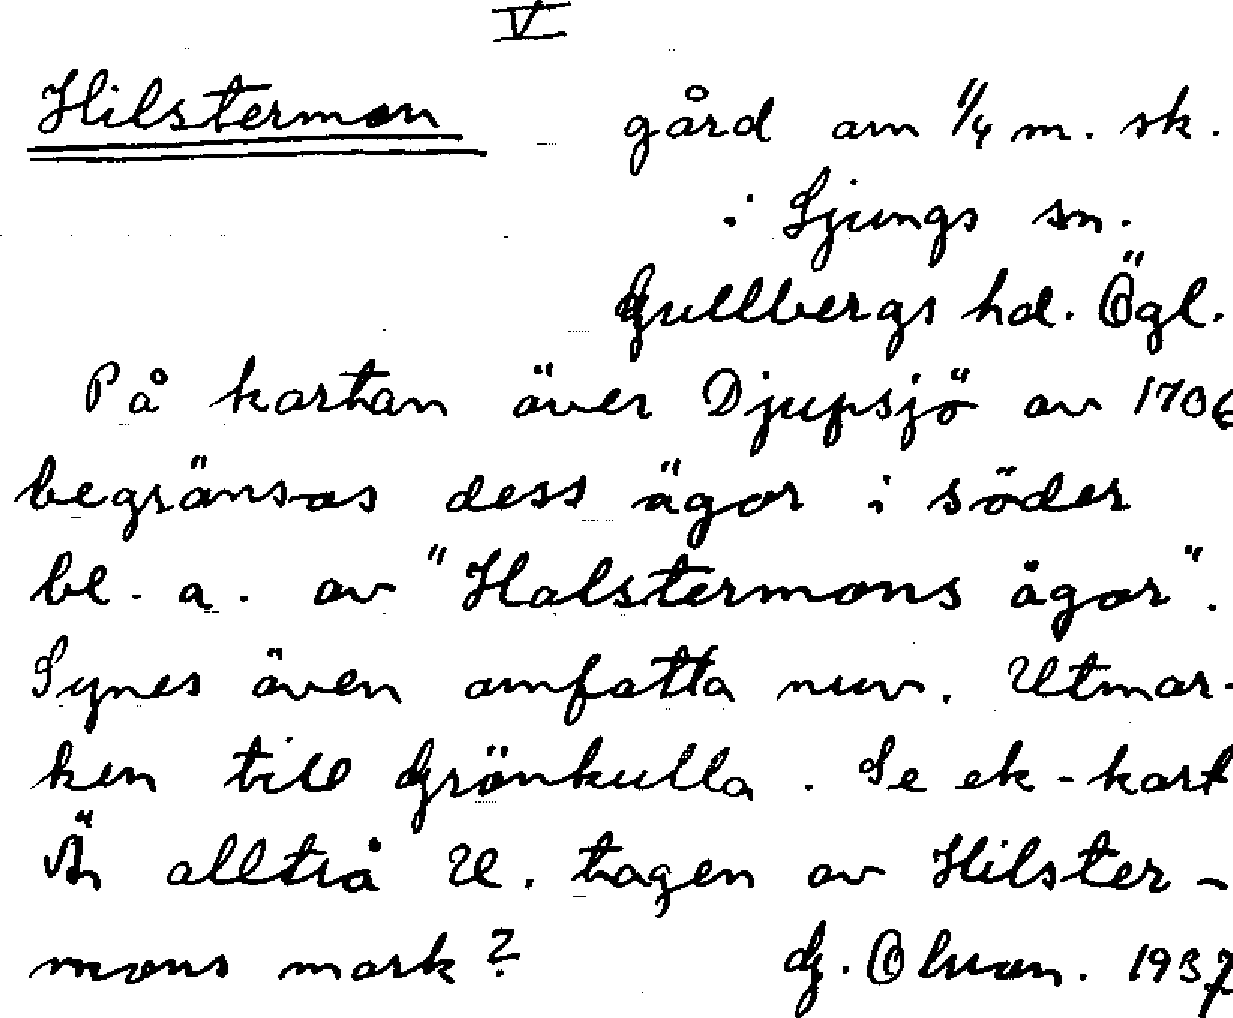 V
Hilstermon gård om 1/4 m. sk.
i Ljungs sn.
Gullbergs hd. Ögl.
På kartan över Djupsjö av 1706
begränsas dess ägor i söder
bl. a. av "Halstermons ägor".
Synes även omfatta nuv. Utmar-
ken till Grönkulla. Se ek-kart
Är alltså U. tagen av Hilster-
mons mark? G. Olson. 1937